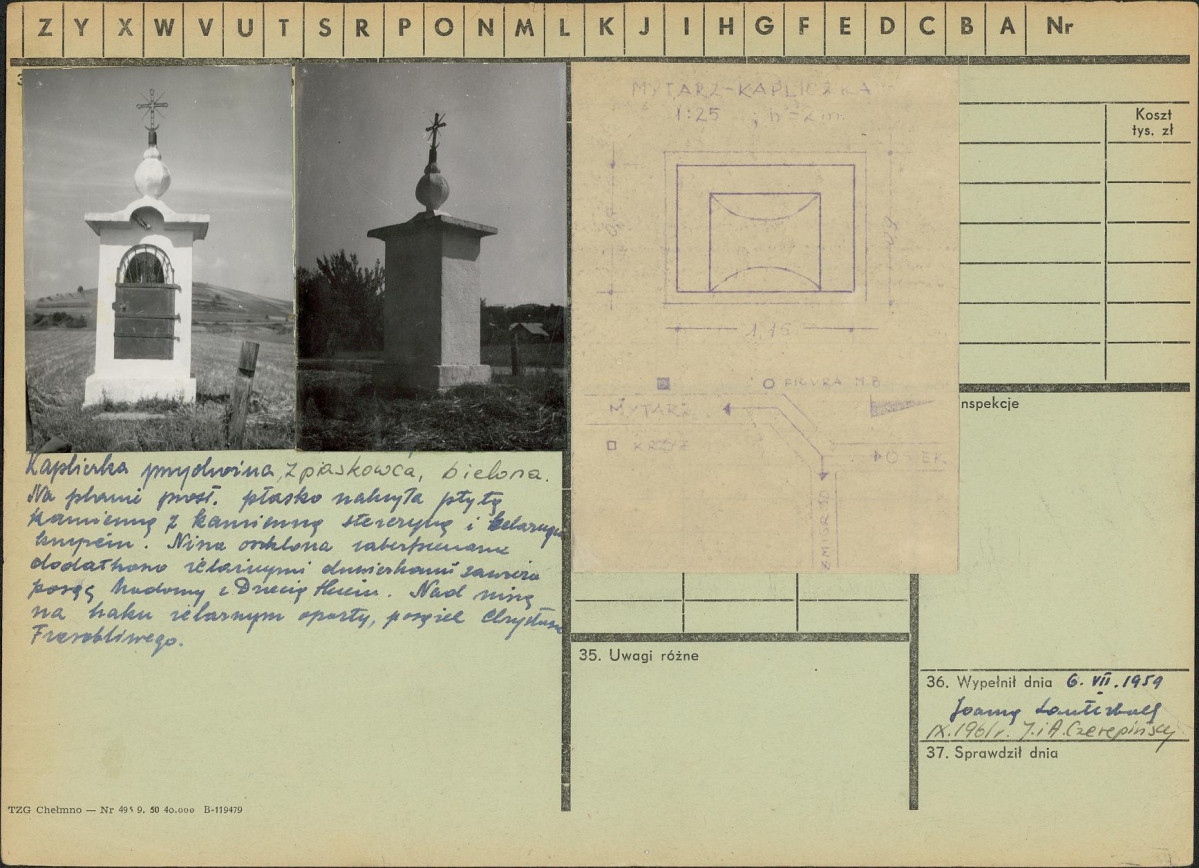 Z Y X W V U T S R P O N M L K J I H G F E D C B A Nr
MYTARZ-KAPLICZKA
1:25
Koszt
tys. zł
1,15
FIGURA N.8
MYTARZ
KRZYŻ
OSIEK
ŻMIGRÓD
nspekcje
Kapliczka przydrożna, z piaskowca, bielona.
Na planie prost. płasko nakryta płytą
kamienną z kamienną
Nisza oszklona zabezpieczona
dodatkowo żelaznymi drzwiczkami zawiera
posąg Madonny z Dzieciątkiem. Nad niszą
na haku żelaznym oparty, posążek Chrystusa
Frasobliwego.
35. Uwagi różne
36. Wypełnił dnia 6. VII. 1959
Joanna
IX. 1961 r. J. i A. Czerepińscy
37. Sprawdził dnia
TZG Chełmno — Nr 495 9. 50 40.000 B-119479